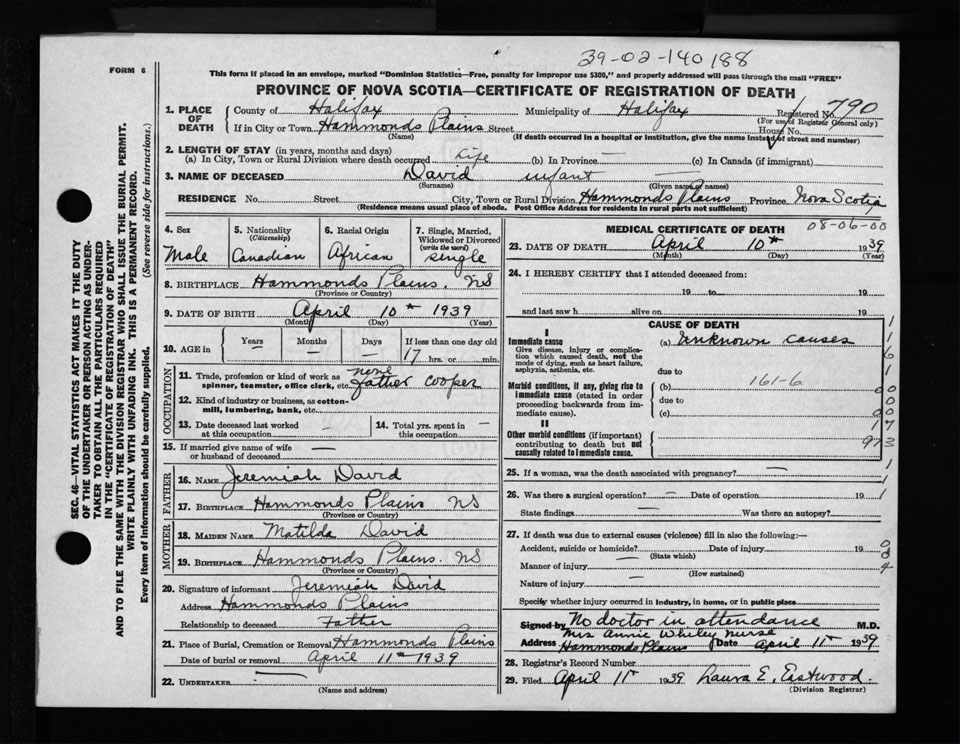 39-02-140188
FORM 6
This form if placed in an envelope, marked "Dominion Statistics—Free, penalty for improper use $300," and properly addressed will pass through the mail "FREE"
PROVINCE OF NOVA SCOTIA—CERTIFICATE OF REGISTRATION OF DEATH
1. PLACE OF DEATH
County of Halifax Municipality of Halifax Registered No. 790
(For use of Registrar General only)
If in City or Town Hammonds Plains Street House No.
(Name) (If death occurred in a hospital or institution, give the name instead of street and number)
2. LENGTH OF STAY (in years, months and days)
(a) In City, Town or Rural Division where death occurred Life (b) In Province — (c) In Canada (if immigrant)
3. NAME OF DECEASED David infant —
(Surname) (Given name or names)
RESIDENCE No. Street City, Town or Rural Division Hammonds Plains Province Nova Scotia
(Residence means usual place of abode. Post Office Address for residents in rural parts not sufficient)
4. Sex 5. Nationality (Citizenship) 6. Racial Origin 7. Single, Married, Widowed or Divorced (write the word)
Male Canadian African single
8. BIRTHPLACE Hammonds Plains. NS
(Province or Country)
9. DATE OF BIRTH April 10th 1939
(Month) (Day) (Year)
10. AGE in Years — Months — Days — If less than one day old
17 hrs. or min.
OCCUPATION
11. Trade, profession or kind of work as spinner, teamster, office clerk, etc. none
father cooper
12. Kind of industry or business, as cotton-mill, lumbering, bank, etc.
13. Date deceased last worked at this occupation
14. Total yrs. spent in this occupation —
15. If married give name of wife or husband of deceased —
FATHER
16. NAME Jeremiah David
17. BIRTHPLACE Hammonds Plains NS
(Province or Country)
MOTHER
18. MAIDEN NAME Matilda David
19. BIRTHPLACE Hammonds Plains. NS
(Province or Country)
20. Signature of informant Jeremiah David
Address Hammonds Plains
Relationship to deceased Father
21. Place of Burial, Cremation or Removal Hammonds Plains
Date of burial or removal April 11th 1939
22. UNDERTAKER —
(Name and address)
MEDICAL CERTIFICATE OF DEATH 08-06-00
23. DATE OF DEATH April 10th 1939
(Month) (Day) (Year)
24. I HEREBY CERTIFY that I attended deceased from:
19 to 19
and last saw h alive on 19
CAUSE OF DEATH
I
Immediate cause (a) Unknown causes
Give disease, injury or complication which caused death, not the mode of dying, such as heart failure, asphyxia, asthenia, etc.
due to
Morbid conditions, if any, giving rise to immediate cause (stated in order proceeding backwards from immediate cause). (b) 161-6
due to
(c)
II
Other morbid conditions (if important) contributing to death but not causally related to immediate cause.
25. If a woman, was the death associated with pregnancy? —
26. Was there a surgical operation? — Date of operation 19
State findings — Was there an autopsy?
27. If death was due to external causes (violence) fill in also the following:—
Accident, suicide or homicide? — Date of injury 19
(State which)
Manner of injury —
(How sustained)
Nature of injury —
Specify whether injury occurred in industry, in home, or in public place
Signed by No doctor in attendance M.D.
Mrs Annie Whiley Nurse
Address Hammonds Plains Date April 11th 1939
28. Registrar's Record Number
29. Filed April 11th 1939 Laura E. Eastwood.
(Division Registrar)
SEC. 46—VITAL STATISTICS ACT MAKES IT THE DUTY
OF THE UNDERTAKER OR PERSON ACTING AS UNDER-
TAKER TO OBTAIN ALL THE PARTICULARS REQUIRED
IN THE "CERTIFICATE OF REGISTRATION OF DEATH"
AND TO FILE THE SAME WITH THE DIVISION REGISTRAR WHO SHALL ISSUE THE BURIAL PERMIT.
WRITE PLAINLY WITH UNFADING INK. THIS IS A PERMANENT RECORD.
Every item of information should be carefully supplied. (See reverse side for instructions.)